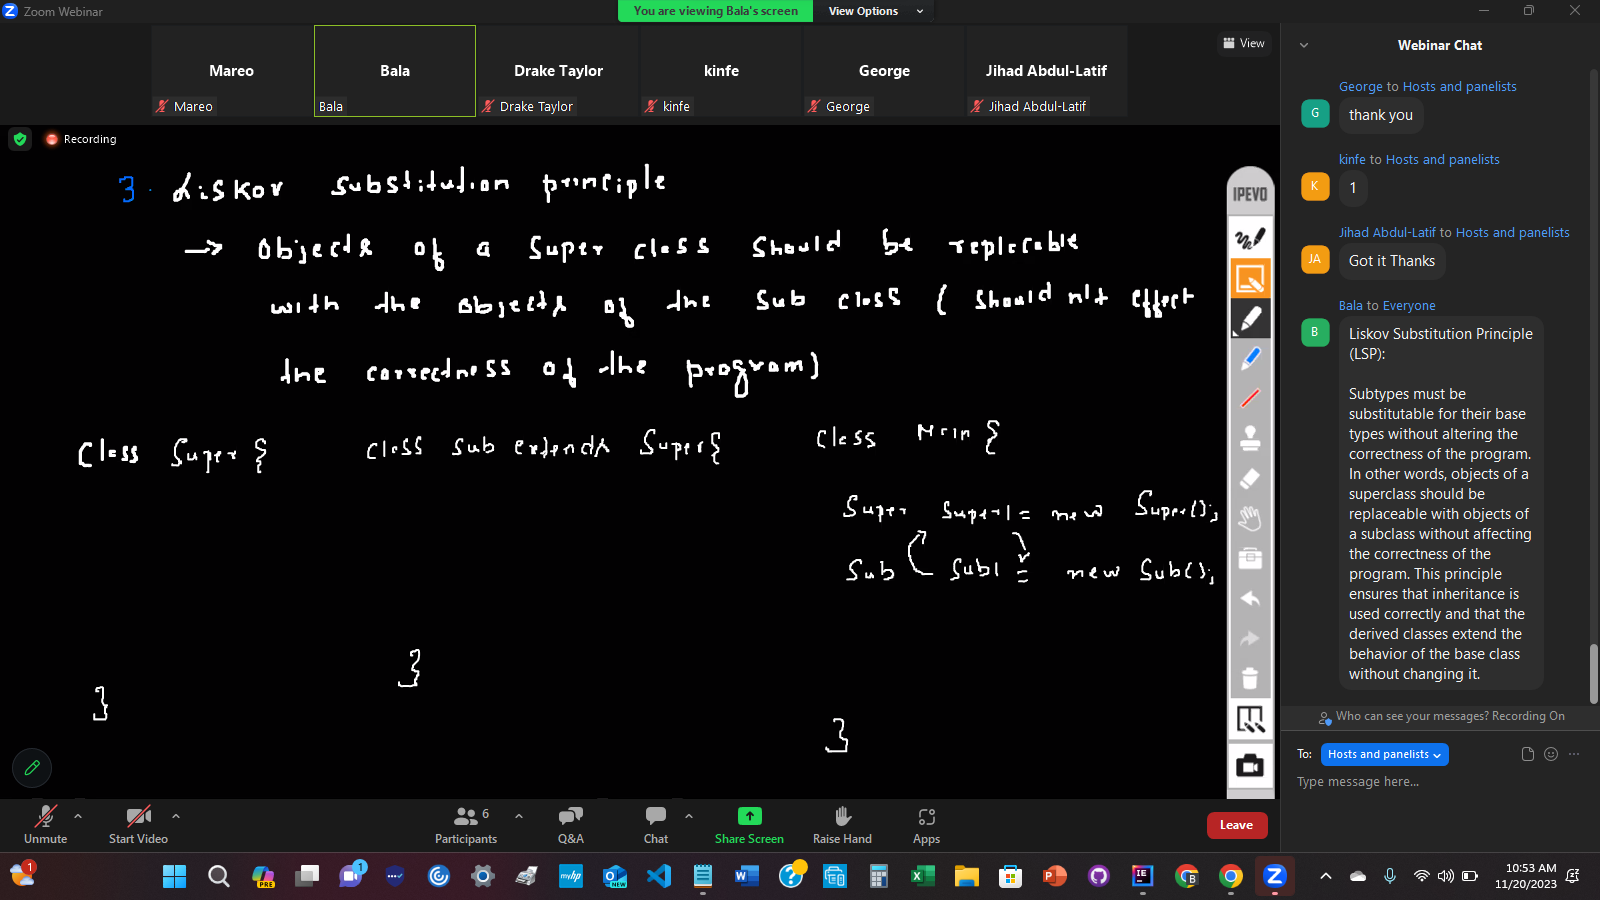 Zoom Webinar
You are viewing Bala's screen
View Options
View
Mareo
Bala
Drake Taylor
kinfe
George
Jihad Abdul-Latif
Mareo
Bala
Drake Taylor
kinfe
George
Jihad Abdul-Latif
Recording
3. Liskov substitution principle
→ Objects of a super class should be replacable
with the objects of the sub class ( should n't effect
the correctness of the program)
Class Super {
class Sub extends Super{
class Main {
Super Super1 = new Super();
Sub Sub1 = new Sub();
}
}
}
IPEVO
Webinar Chat
George to Hosts and panelists
G
thank you
kinfe to Hosts and panelists
K
1
Jihad Abdul-Latif to Hosts and panelists
JA
Got it Thanks
Bala to Everyone
B
Liskov Substitution Principle
(LSP):
Subtypes must be
substitutable for their base
types without altering the
correctness of the program.
In other words, objects of a
superclass should be
replaceable with objects of
a subclass without affecting
the correctness of the
program. This principle
ensures that inheritance is
used correctly and that the
derived classes extend the
behavior of the base class
without changing it.
Who can see your messages? Recording On
To: Hosts and panelists
Type message here...
Unmute
Start Video
6
Participants
Q&A
Chat
Share Screen
Raise Hand
Apps
Leave
1
PRE
1
myhp
NEW
10:53 AM
11/20/2023